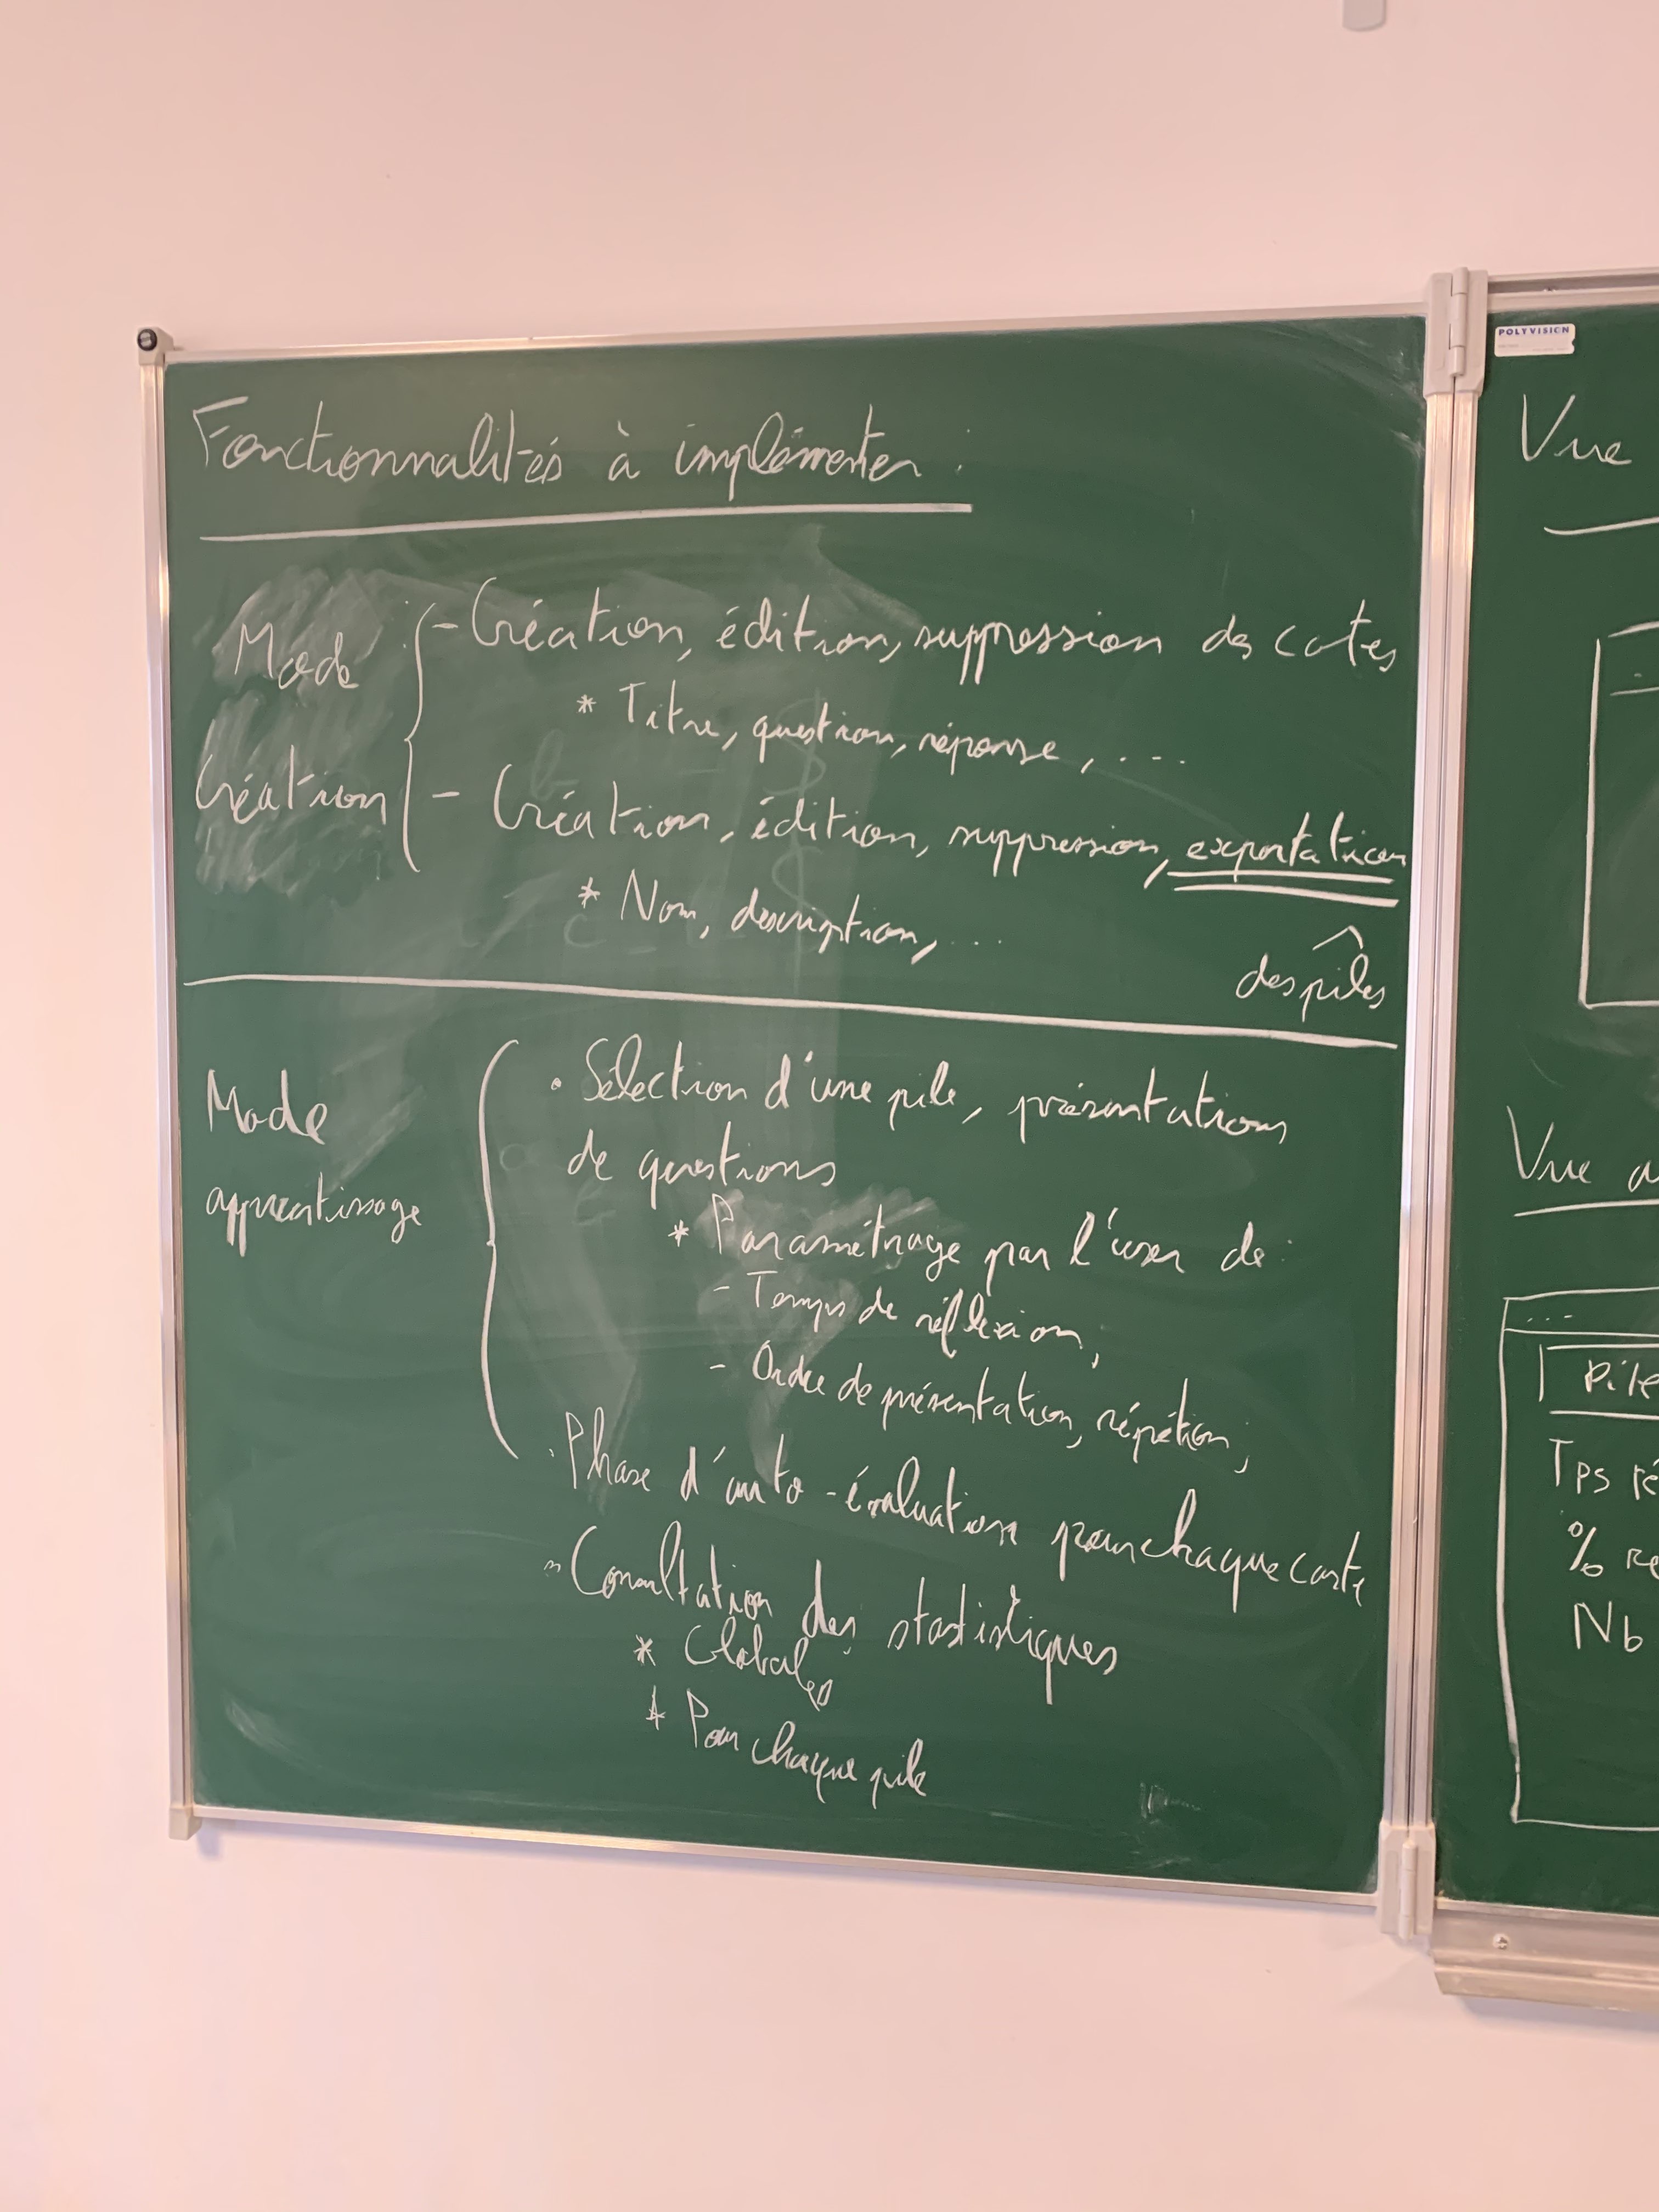 Fonctionnalités à implémenter :
Mode
Création
- Création, édition, suppression des cates
* Titre, question, réponse, ....
- Création, édition, suppression, exportation
* Nom, description, ...
des piles
Mode
apprentissage
. Sélection d'une pile, présentations
de questions
* Paramétrage par l'user de :
- Temps de réflexion,
- Ordre de présentation, répétion,
. Phase d'auto-évaluation pour chaque carte
- Consultation des statistiques
* Globales
* Pour chaque pile
POLYVISION
Vue
Vue a
...
Pile
Tps ré
% re
Nb